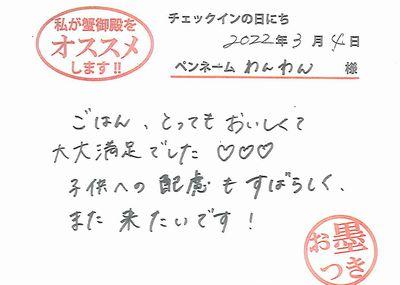 私が蟹御殿を
オススメ
します!!
チェックインの日にち
2022年3月4日
ペンネーム わんわん 様
ごはん、とってもおいしくて
大大満足でした ♡♡♡
子供への配慮もすばらしく、
また来たいです!
お墨
つき